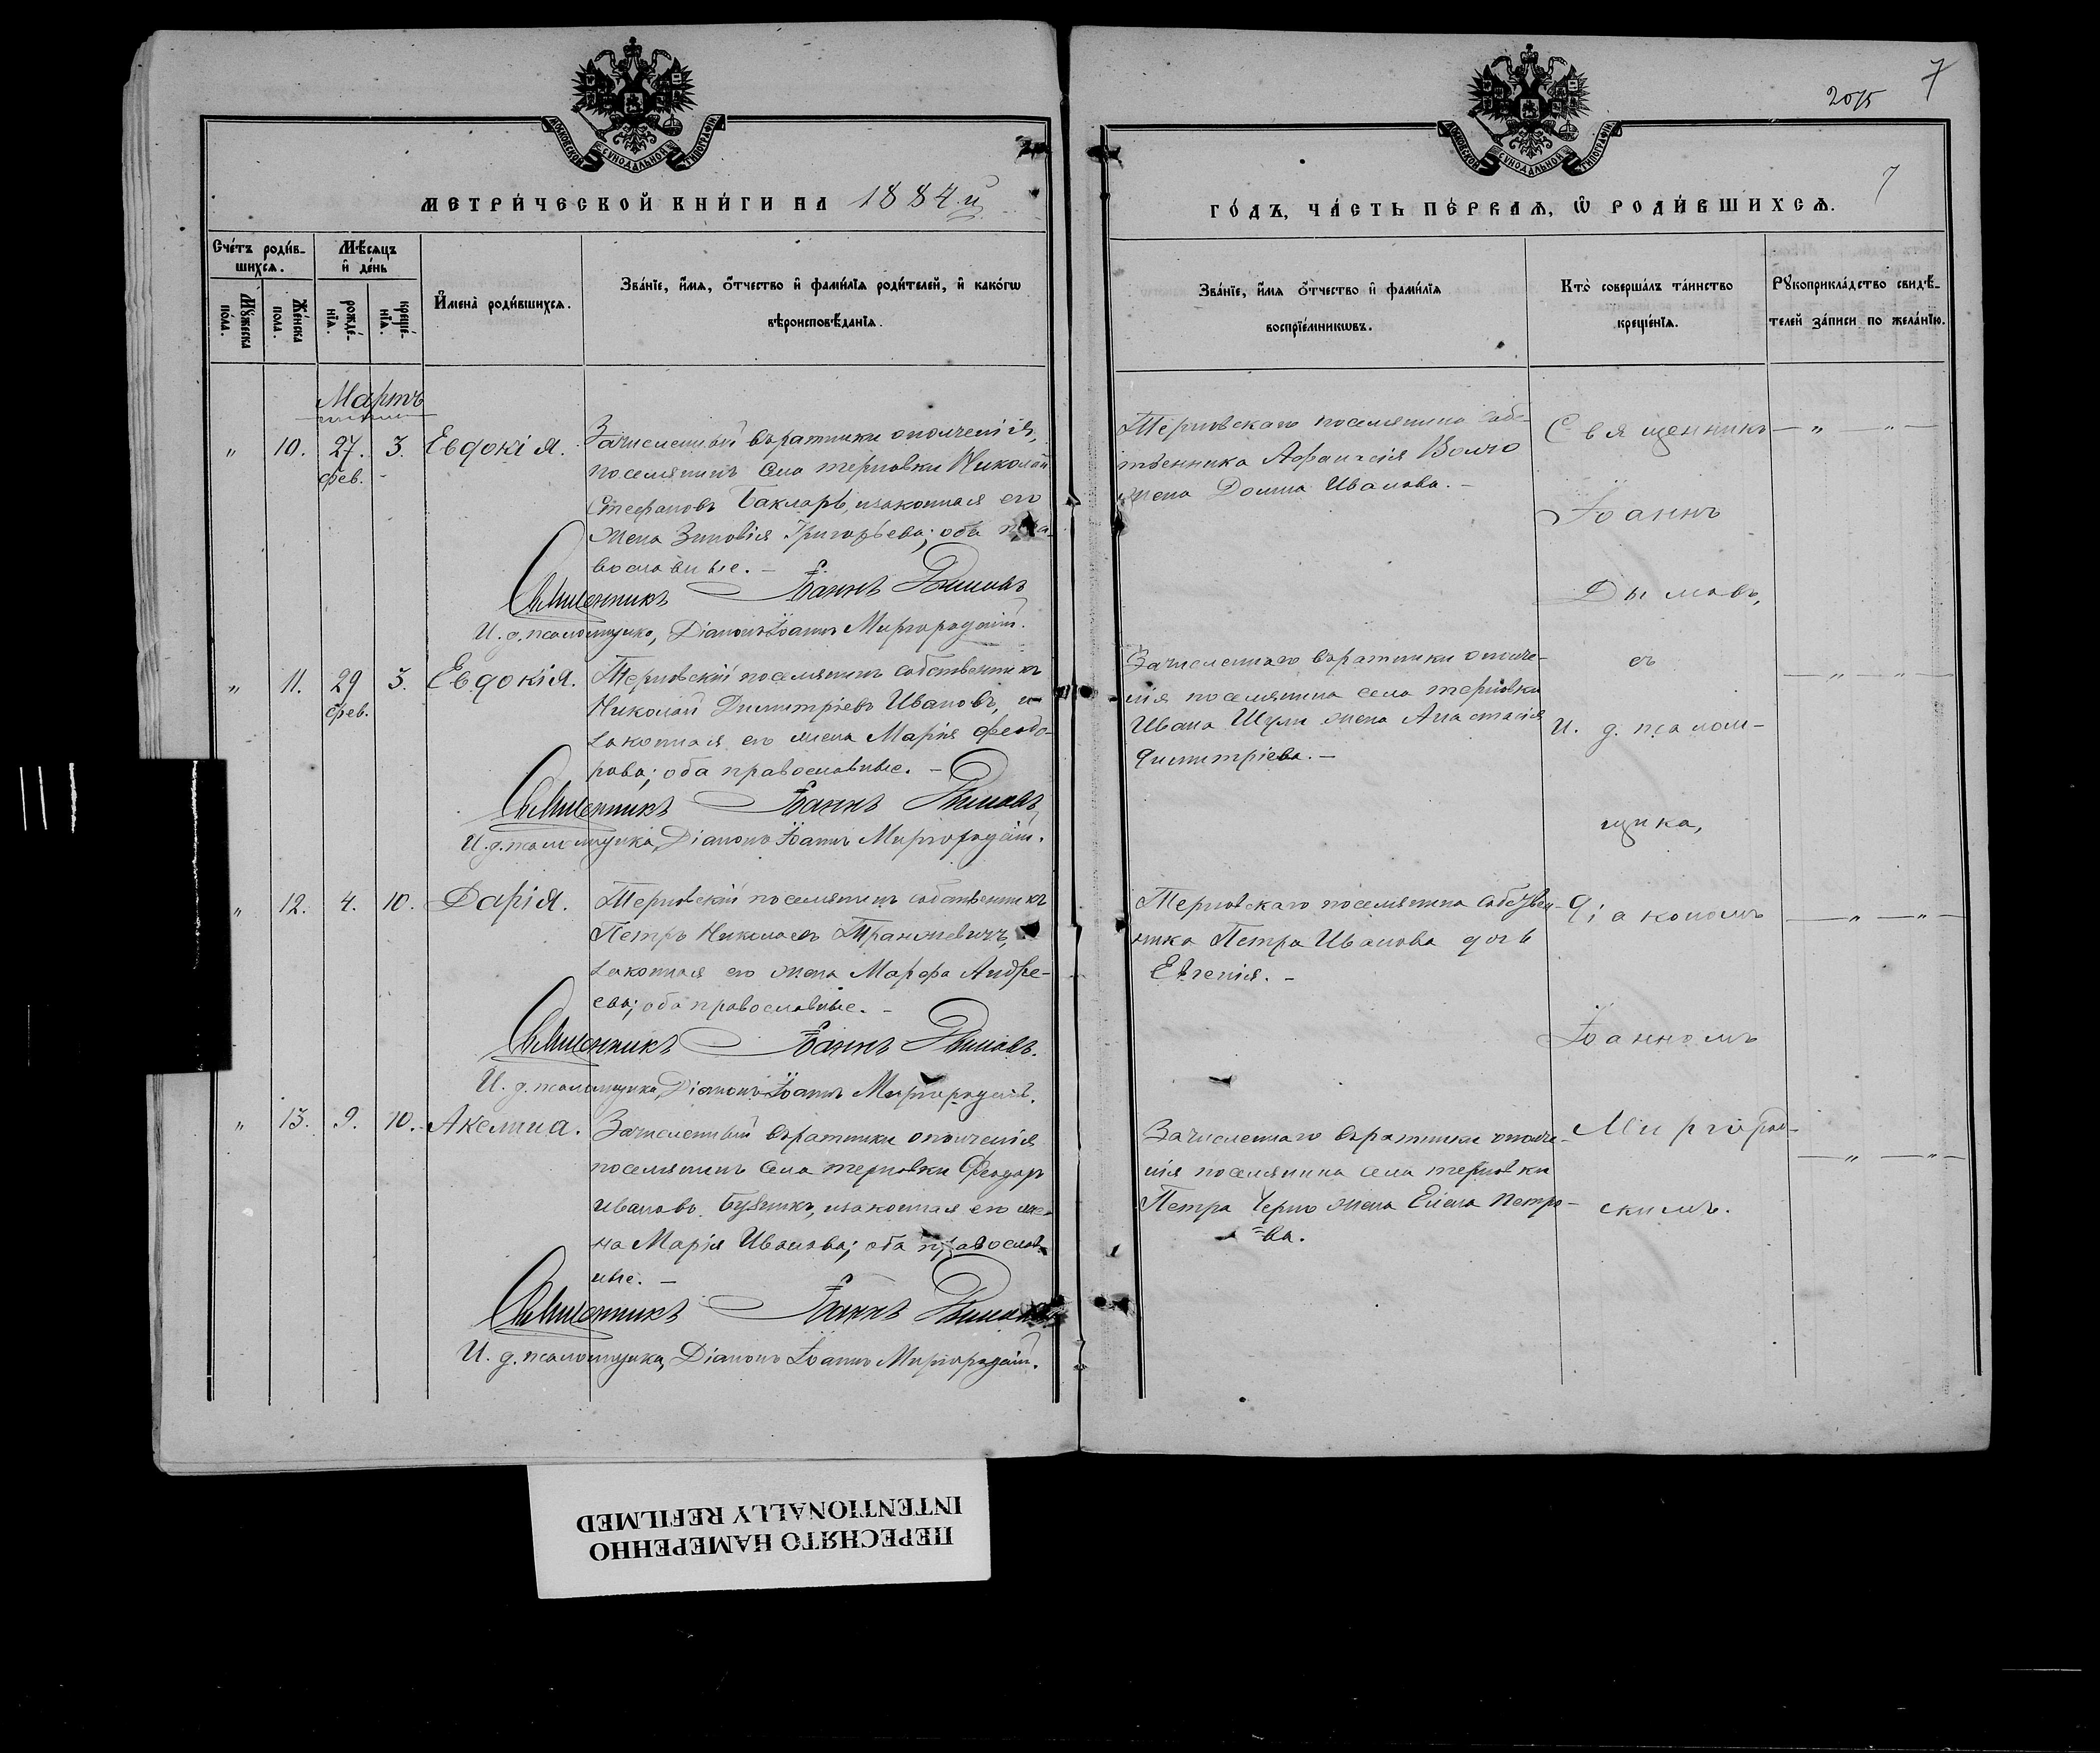 МОСКОВСКОЙ СѴНОДАЛЬНОЙ ТИПОГРАФІИ
МЕТРИ́ЧЕСКОЙ КНИ́ГИ НА 1884 й
Сче́тъ роди́в-
шихсѧ.
Мѣ́сѧцъ
и де́нь
Мꙋ́жеска
по́ла.
Же́нска
пола.
рожде́-
нїѧ.
креще́-
нїѧ.
И҆мена̀ роди́вшихсѧ.
Зва́нїе, и҆́мѧ, ѻ҆́тчество и҆ фами́лїѧ роди́телей, и҆ како́гѡ
вѣроисповѣ́данїѧ.
Мартъ
" 10. 27. 3. Евдокія. Зачисленный въ ратники ополченія,
фев. - поселянинъ села терновки Николай
Стефановъ Бакларъ, изаконная его
жена Зиновія Григорьева; оба пра-
вославные. -
Священникъ Іоаннъ Дымовъ
И. д. псаломщика, Діаконъ Іоаннъ Миргородскій.
" 11. 29 3. Евдокія. Терновскій поселянинъ собственникъ
фев. Николай Димитріевъ Ивановъ, и
законная его жена Марія Феодо-
рова; оба православные. -
Священникъ Іоаннъ Дымовъ
И. д. псаломщика, Діаконъ Іоаннъ Миргородскій.
" 12. 4. 10. Дарія. Терновскій поселянинъ собственникъ
Петръ Николаевъ Транжевичъ, и
законная его жена Марфа Андре-
ева; оба православные. -
Священникъ Іоаннъ Дымовъ.
И. д. псаломщика, Діаконъ Іоаннъ Миргородскій.
" 13. 9. 10. Акелина. Зачисленный въ ратники ополченія
поселянинъ села терновки Феодоръ
Ивановъ, изаконная его же-
на Марія Иванова; оба православ-
ные. -
Священникъ Іоаннъ Дымовъ
И. д. псаломщика, Діаконъ Іоаннъ Миргородскій.
2075 7
7
МОСКОВСКОЙ СѴНОДАЛЬНОЙ ТИПОГРАФІИ
ГО́ДЪ, ЧА́СТЬ ПЕ́РВАѦ, Ѡ҆ РОДИ́ВШИХСѦ.
Зва́нїе, и҆́мѧ ѻ҆́тчество и҆ фами́лїѧ
воспрїе́мникѡвъ.
Кто̀ соверша́лъ та́инство
креще́нїѧ.
Рꙋкоприкла́дство свидѣ́-
телей за́писи по жела́нїю.
Терновскаго поселянина соб-
ственника Афанасія Волчо
жена Домна Иванова. -
Зачисленнаго въ ратники ополче-
нія поселянина села терновки
Ивана Шули жена Анастасія
Димитріева. -
Терновскаго поселянина собствен-
ника Петра Иванова дочь
Евгенія. -
Зачисленнаго въ ратники ополче-
нія поселянина села терновки
Петра Черно жена Елена Петро-
=ва.
Священникъ
Іоаннъ
Дымовъ,
съ
и. д. псалом-
щика,
діакономъ
Іоанномъ
Миргород-
скимъ.
— " — " —
— " — " —
— " — " —
— " — " —
ПЕРЕСНЯТО НАМЕРЕННО
INTENTIONALLY REFILMED